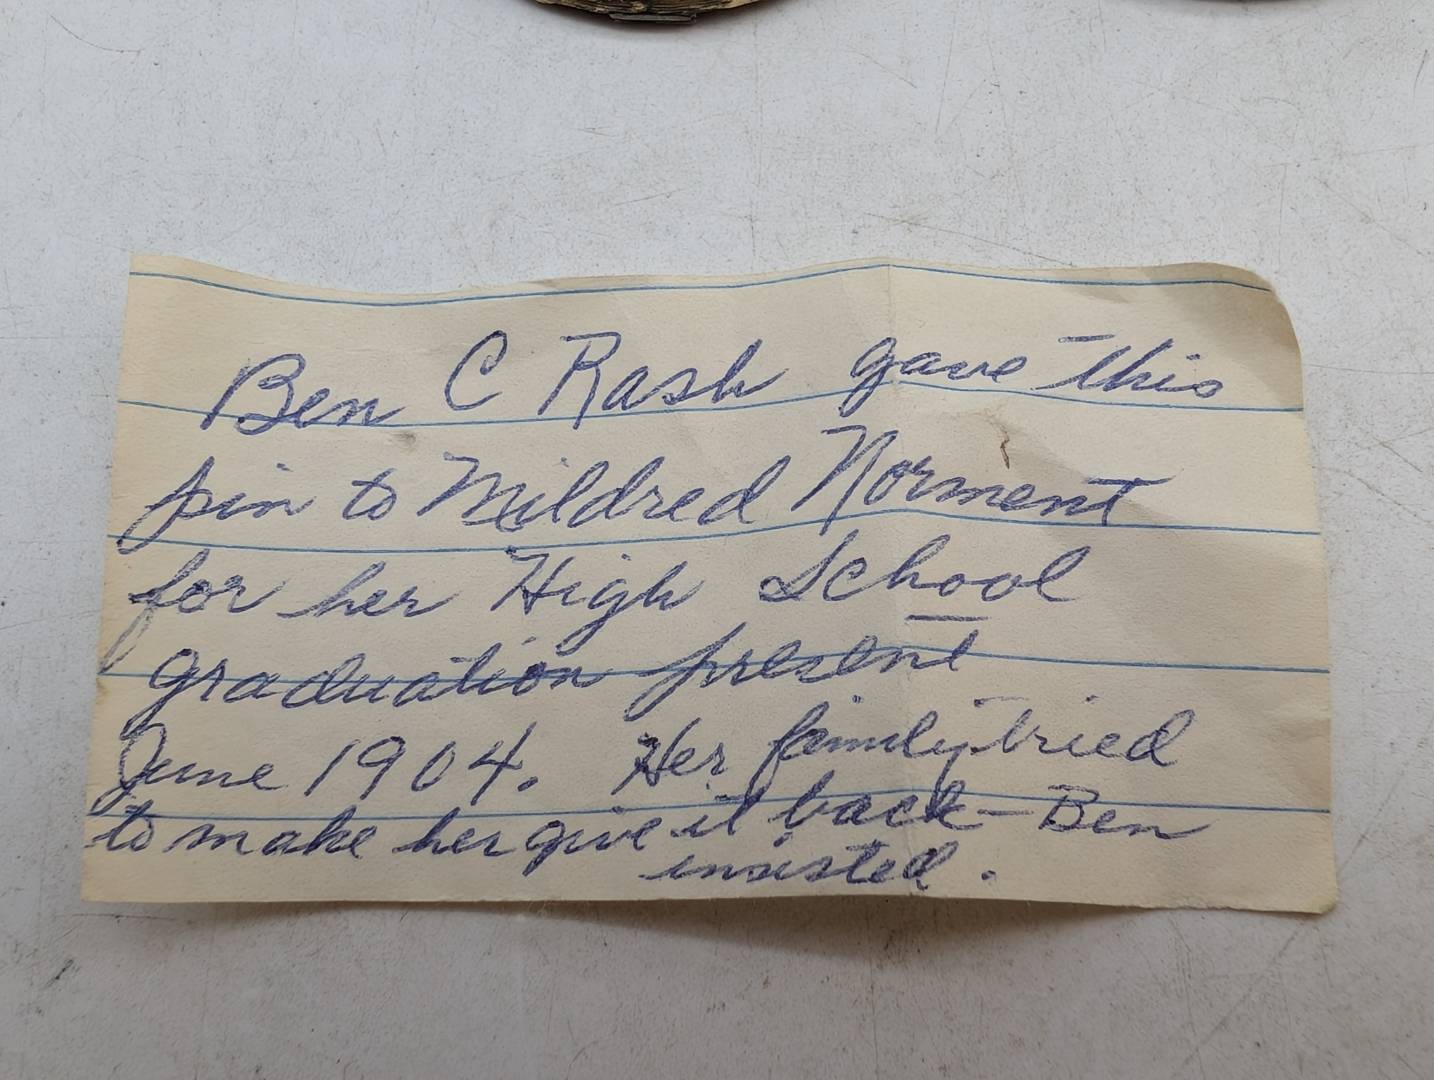 Ben C Rash gave this
pin to Mildred Norment
for her High School
graduation present
June 1904. Her family tried
to make her give it back - Ben
insisted.